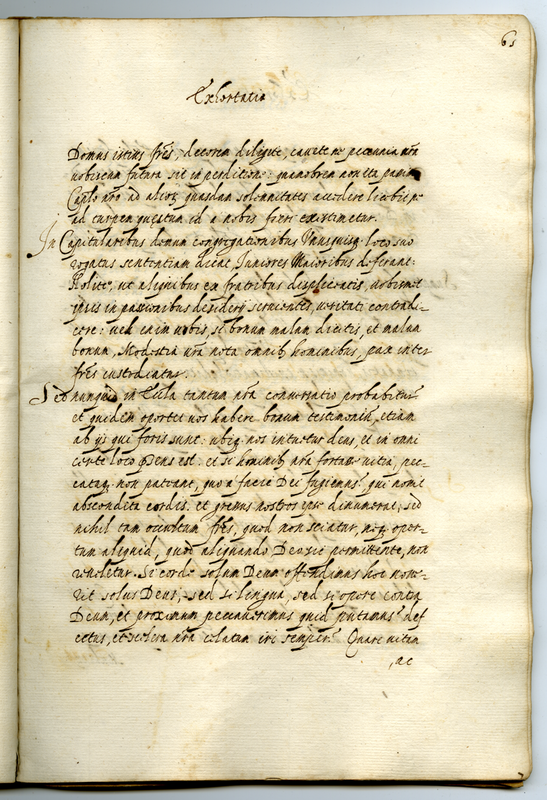 61
Exhortatio
Domus istius fr̃es, decorem diligite, cauete ne pecunia nr̃a
nobiscum futura sit in perditione: quamobrem non ita
Caplo nr̃o ad alioq; quasdam solemnitates accedere
ad turpem quęstum id a nobis fieri existimetur.
In Capitularibus domus congregationibus Vnusquisq; loco suo
rogatus sententiam dicat, Iuniores Maioribus deferant.
Nolite, ut aliquibus ex fratribus displiceatis, uobismet
ipsis in passionibus desiderij seruientes, ueritati contradi-
cere: ueh enim uobis, si bonum malum dicitis, et malum
bonum, Modestia ur̃a nota omnib; hominibus, pax inter
fr̃es custodiatur.
Sed nunquid in Cella tantum nr̃a conuersatio probabitur?
et quidem oportet nos habere bonum testimoniũ, etiam
ab ijs qui foris sunt: ubiq; nos intuetur deus, et in omni
certe loco p̃sens est: et si hominib; nr̃a fortasse uitia, pec-
cataq; non pateant, quo a facie Dei fugiemus? qui nouit
abscondita cordis, et gressus nostros ipse dinumerat, sed
nihil tam occultum fr̃es, quod non sciatur, neq; oper-
tum aliquid, quod aliquando Deo sic permittente, non
reueletur. Si corde solum Deum offendimus hoc noue-
rit solus Deus, sed si lingua, sed si opere contra
Deum, et proximum peccauerimus quid putamus? def
ectus, et scelera nr̃a celatum iri semper? Quare uitam
ac